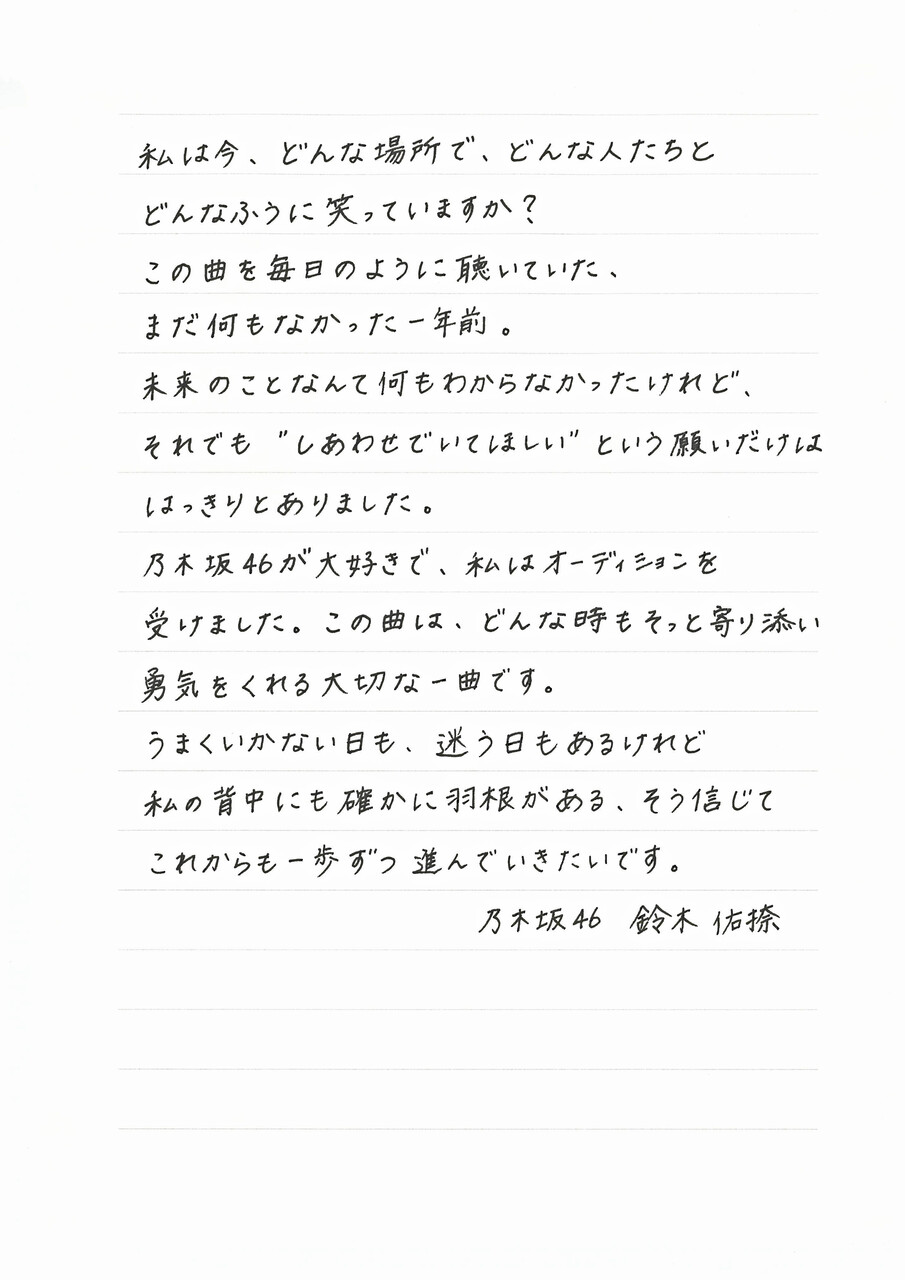 私は今、どんな場所で、どんな人たちと
どんなふうに笑っていますか？
この曲を毎日のように聴いていた、
まだ何もなかった一年前。
未来のことなんて何もわからなかったけれど、
それでも〝しあわせでいてほしい〟という願いだけは
はっきりとありました。
乃木坂46が大好きで、私はオーディションを
受けました。この曲は、どんな時もそっと寄り添い
勇気をくれる大切な一曲です。
うまくいかない日も、迷う日もあるけれど
私の背中にも確かに羽根がある、そう信じて
これからも一歩ずつ進んでいきたいです。
乃木坂46 鈴木佑捺